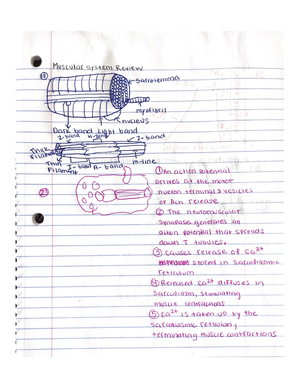 Muscular System Review
Sarcolemma
myofibril
nucleus
Dark band light band
Z-band
Thick
filament
Thin
filament
A-band
m-line
① An action potential
arrives at the motor
neuron terminal & vesicles
of Ach release
② The neuromuscular
synapse generates an
action potential that spreads
down T tubules.
③ causes release of Ca²⁺
stored in sarcoplasmic
reticulum
④ Released Ca²⁺ diffuses in
sarcoplasm, stimulating
muscle contractions
⑤ Ca²⁺ is taken up by the
terminating muscle contractions